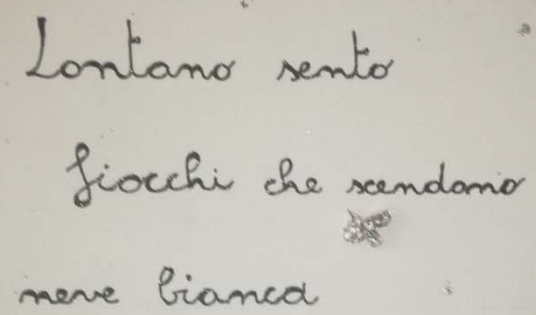 Lontano sento
fiocchi che scendono
neve bianca